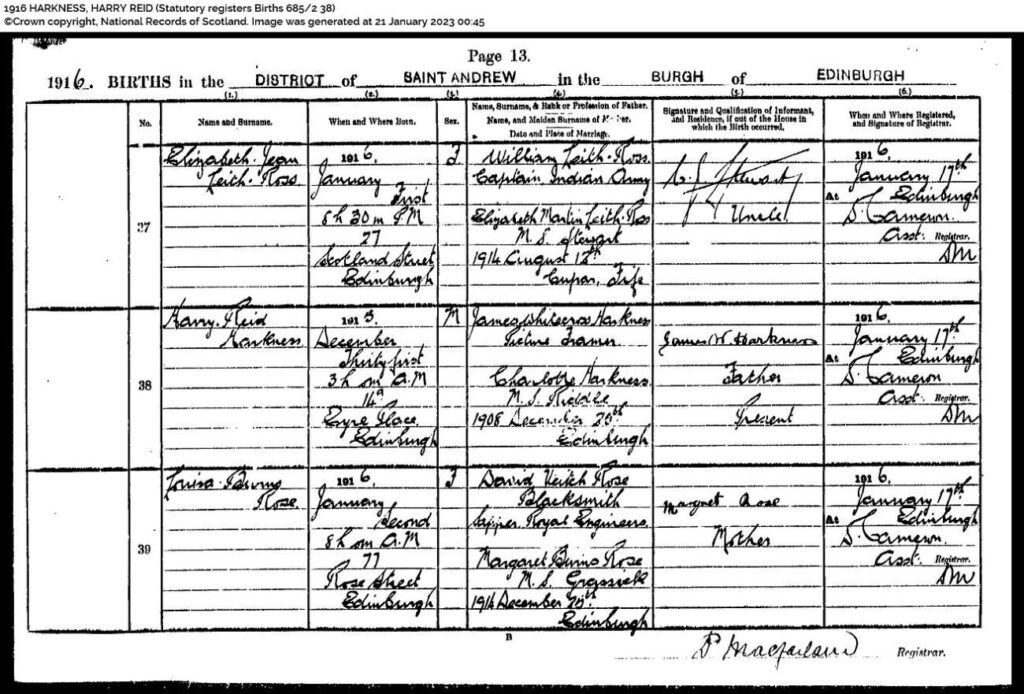 1916 HARKNESS, HARRY REID (Statutory registers Births 685/2 38)
©Crown copyright, National Records of Scotland. Image was generated at 21 January 2023 00:45
Page 13.
1916. BIRTHS in the DISTRICT of SAINT ANDREW in the BURGH of EDINBURGH
(1.) (2.) (3.) (4.) (5.) (6.)
No.
Name and Surname.
When and Where Born.
Sex.
Name, Surname, & Rank or Profession of Father.
Name, and Maiden Surname of Mother.
Date and Place of Marriage.
Signature and Qualification of Informant,
and Residence, if out of the House in
which the Birth occurred.
When and Where Registered,
and Signature of Registrar.
37
Elizabeth Jean
Leith-Ross
1916.
January
First
8 h 30 m P.M
27
Scotland Street
Edinburgh
F
William Leith-Ross
Captain, Indian Army
Elizabeth Martin Leith-Ross
M.S. Stewart
1914 August 12th
Cupar, Fife
Stewart
Uncle
1916.
January 17th
At Edinburgh
S. Cameron
Asst. Registrar.
DM
38
Harry Reid
Harkness
1915.
December
Thirty-first
3 h 0 m A.M
14a
Eyre Place
Edinburgh
M
James Whitecross Harkness
Picture Framer
Charlotte Harkness
M.S. Riddle
1908 December 25th
Edinburgh
James W. Harkness
Father
Present
1916.
January 17th
At Edinburgh
S. Cameron
Asst. Registrar.
DM
39
Louisa Burns
Rose
1916.
January
Second
8 h 0 m A.M
77
Rose Street
Edinburgh
F
David Veitch Rose
Blacksmith
Sapper Royal Engineers
Margaret Burns Rose
M.S. Grassick
1914 December 25th
Edinburgh
Margret Rose
Mother
1916.
January 17th
At Edinburgh
S. Cameron
Asst. Registrar.
DM
B
Macfarland Registrar.